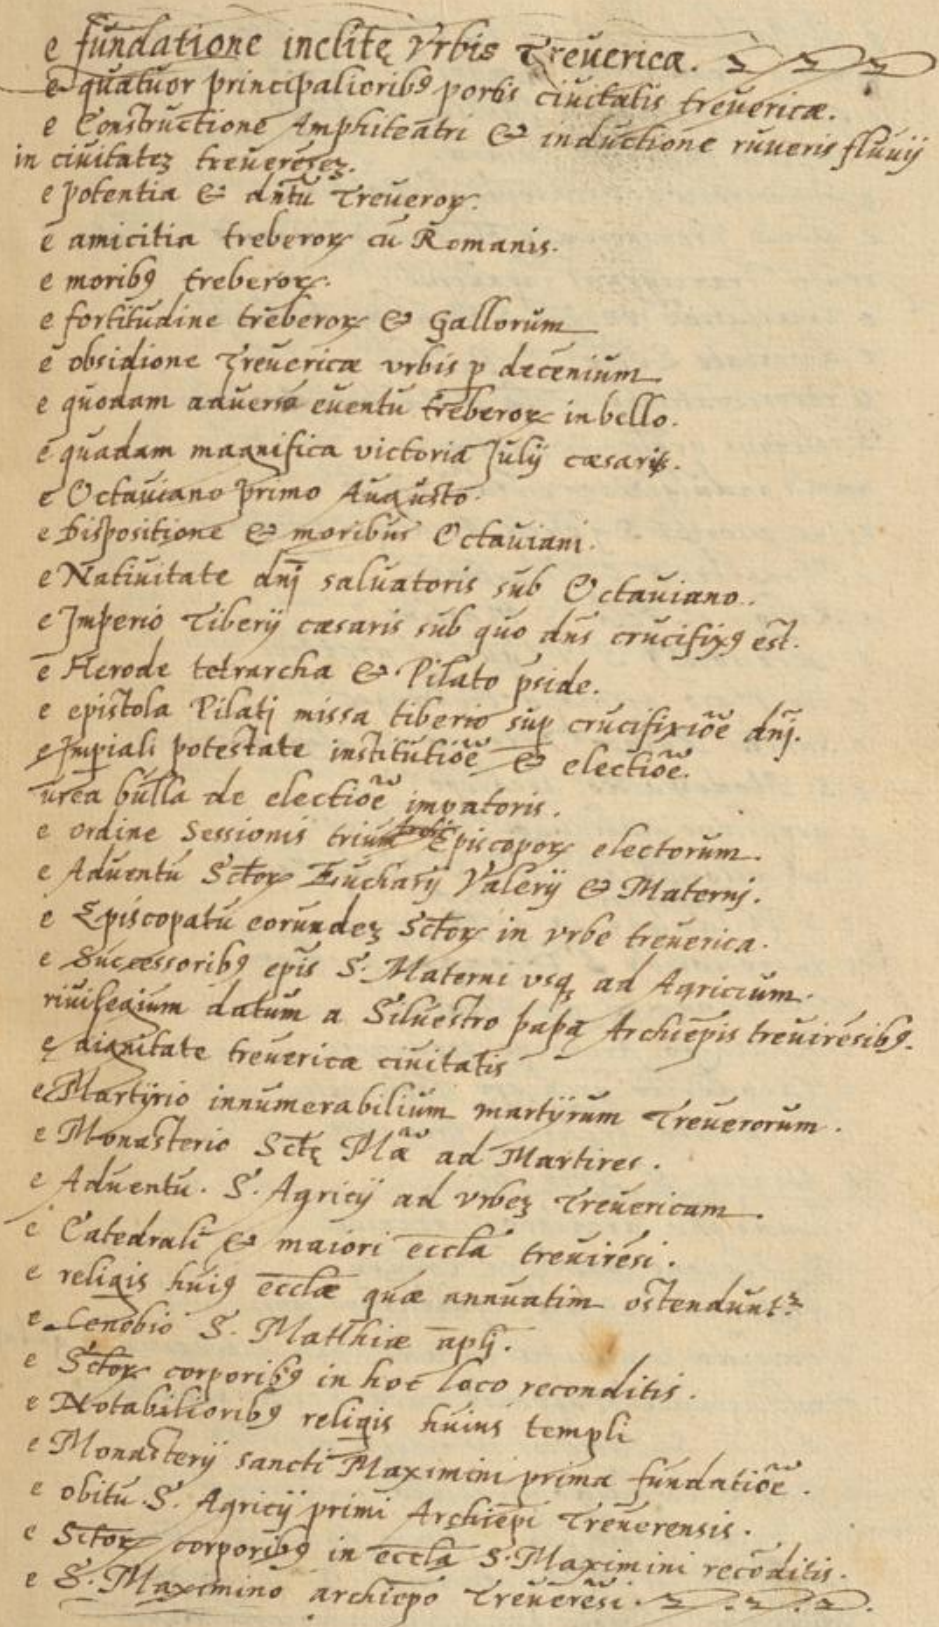 e fundatione inclitę Vrbis Treuericæ.
e quatuor principalioribꝰ portis ciuitatis treuericæ.
e Constructione Amphiteatri & inductione ruueris fluuij
in ciuitateꝫ treuerēseꝫ.
e potentia & dn̄tu Treueroꝝ.
e amicitia treberoꝝ cū Romanis.
e moribꝰ treberoꝝ.
e fortitudine treberoꝝ & Gallorum
e obsidione Treuericæ vrbis ꝑ decenium
e quodam aduerso euentu treberoꝝ in bello.
e quadam magnifica victoria Julij cæsaris.
e Octauiano primo Augusto.
e Dispositione & moribus Octauiani.
e Natiuitate dnj̄ saluatoris sub Octauiano.
e Imperio Tiberij cæsaris sub quo dn̄s crucifixꝰ est.
e Herode tetrarcha & Pilato p̄side.
e epistola Pilatj missa tiberio suꝑ crucifixiōe dnj̄.
e Imꝑiali potestate institutiōe & electiōe.
urea bulla de electiōe imꝑatoris.
e ordine Sessionis trium Episcopoꝝ electorum.
e Aduentu Sctoꝝ Eucharij Valerij & Maternj.
e Episcopatu eorundeꝫ Sctoꝝ in vrbe treuerica.
e Successoribꝰ epis S. Materni vsqꝫ ad Agricium.
riuilegium datum a Siluestro papa Archiēpis treuirēsibꝰ.
e dignitate treuericæ ciuitatis
e Martyrio innumerabilium martyrum Treuerorum.
e Monasterio Sctę Mā ad Martires.
e Aduentu. S. Agricij ad vrbeꝫ Treuericam.
e Catedrali & maiori eccl̄a treuirēsi.
e reliqis huiꝰ eccl̄æ quæ annuatim ostendunt᷑
e Cenobio S. Matthiæ apl̄j.
e Sctoꝝ corporibꝰ in hoc loco reconditis.
e Notabilioribꝰ reliqis huius templi
e Monasterij sancti Maximini prima fundatiōe.
e obitu S. Agricij primi Archiēpi Treuerensis.
e Sctoꝝ corporibꝰ in eccl̄a S. Maximini recōditis.
e S. Maximino archiēpo Treuerēsi.